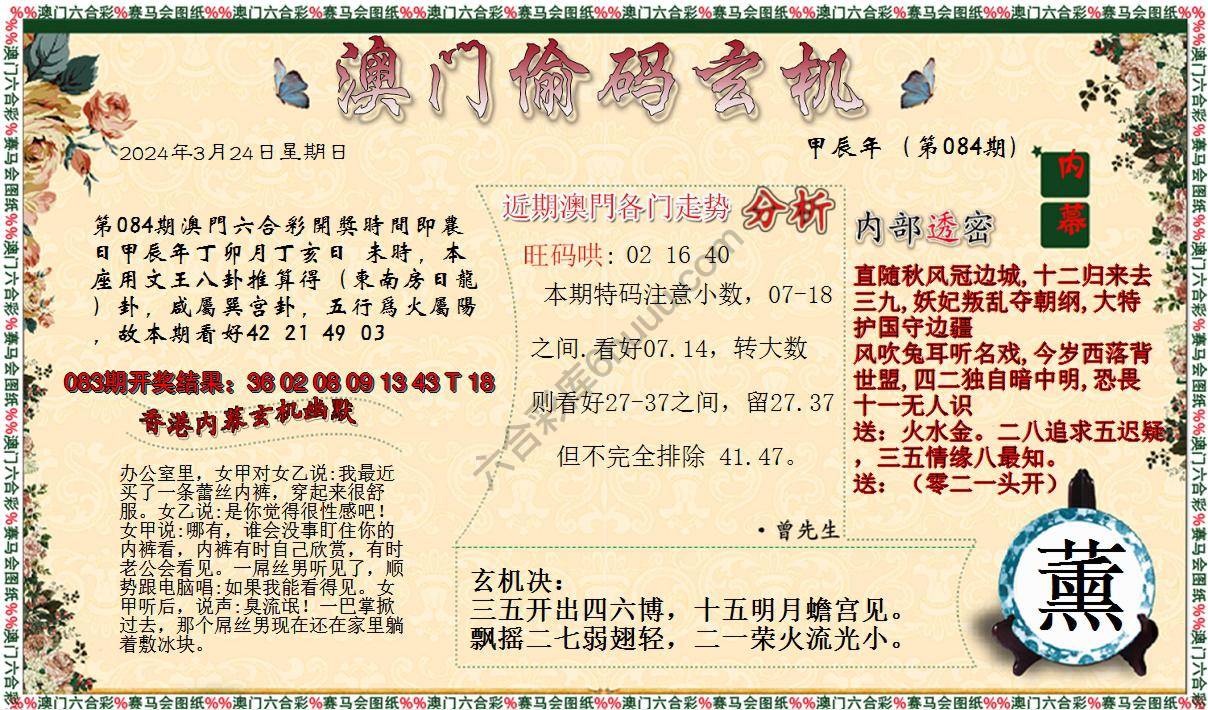 %%澳门六合彩%赛马会图纸%%澳门六合彩%赛马会图纸%%澳门六合彩%赛马会图纸%%澳门六合彩%赛马会图纸%%澳门六合彩%赛马会图纸%%澳门六合彩%赛马会图纸%%
澳门偷码玄机
2024年3月24日星期日
甲辰年（第084期）
内幕
第084期澳門六合彩開獎時間即農
日甲辰年丁卯月丁亥日 未時，本
座用文王八卦推算得（東南房日龍
）卦，咸屬巽宫卦，五行爲火屬陽
，故本期看好42 21 49 03
083期开奖结果：36 02 08 09 13 43 T 18
香港内幕玄机幽默
办公室里，女甲对女乙说:我最近
买了一条蕾丝内裤，穿起来很舒
服。女乙说:是你觉得很性感吧！
女甲说:哪有，谁会没事盯住你的
内裤看，内裤有时自己欣赏，有时
老公会看见。一屌丝男听见了，顺
势跟电脑唱:如果我能看得见。女
甲听后，说声:臭流氓！一巴掌掀
过去，那个屌丝男现在还在家里躺
着敷冰块。
近期澳門各门走势 分析
旺码哄: 02 16 40
本期特码注意小数，07-18
之间.看好07.14，转大数
则看好27-37之间，留27.37
但不完全排除 41.47。
·曾先生
内部透密
直随秋风冠边城,十二归来去
三九,妖妃叛乱夺朝纲,大特
护国守边疆
风吹兔耳听名戏,今岁西落背
世盟,四二独自暗中明,恐畏
十一无人识
送：火水金。二八追求五迟疑
，三五情缘八最知。
送：（零二一头开）
玄机决：
三五开出四六博，十五明月蟾宫见。
飘摇二七弱翅轻，二一荣火流光小。
薰
%%澳门六合彩%赛马会图纸%%澳门六合彩%赛马会图纸%%澳门六合彩%赛马会图纸%%澳门六合彩%赛马会图纸%%澳门六合彩%赛马会图纸%%澳门六合彩%赛马会图纸%%